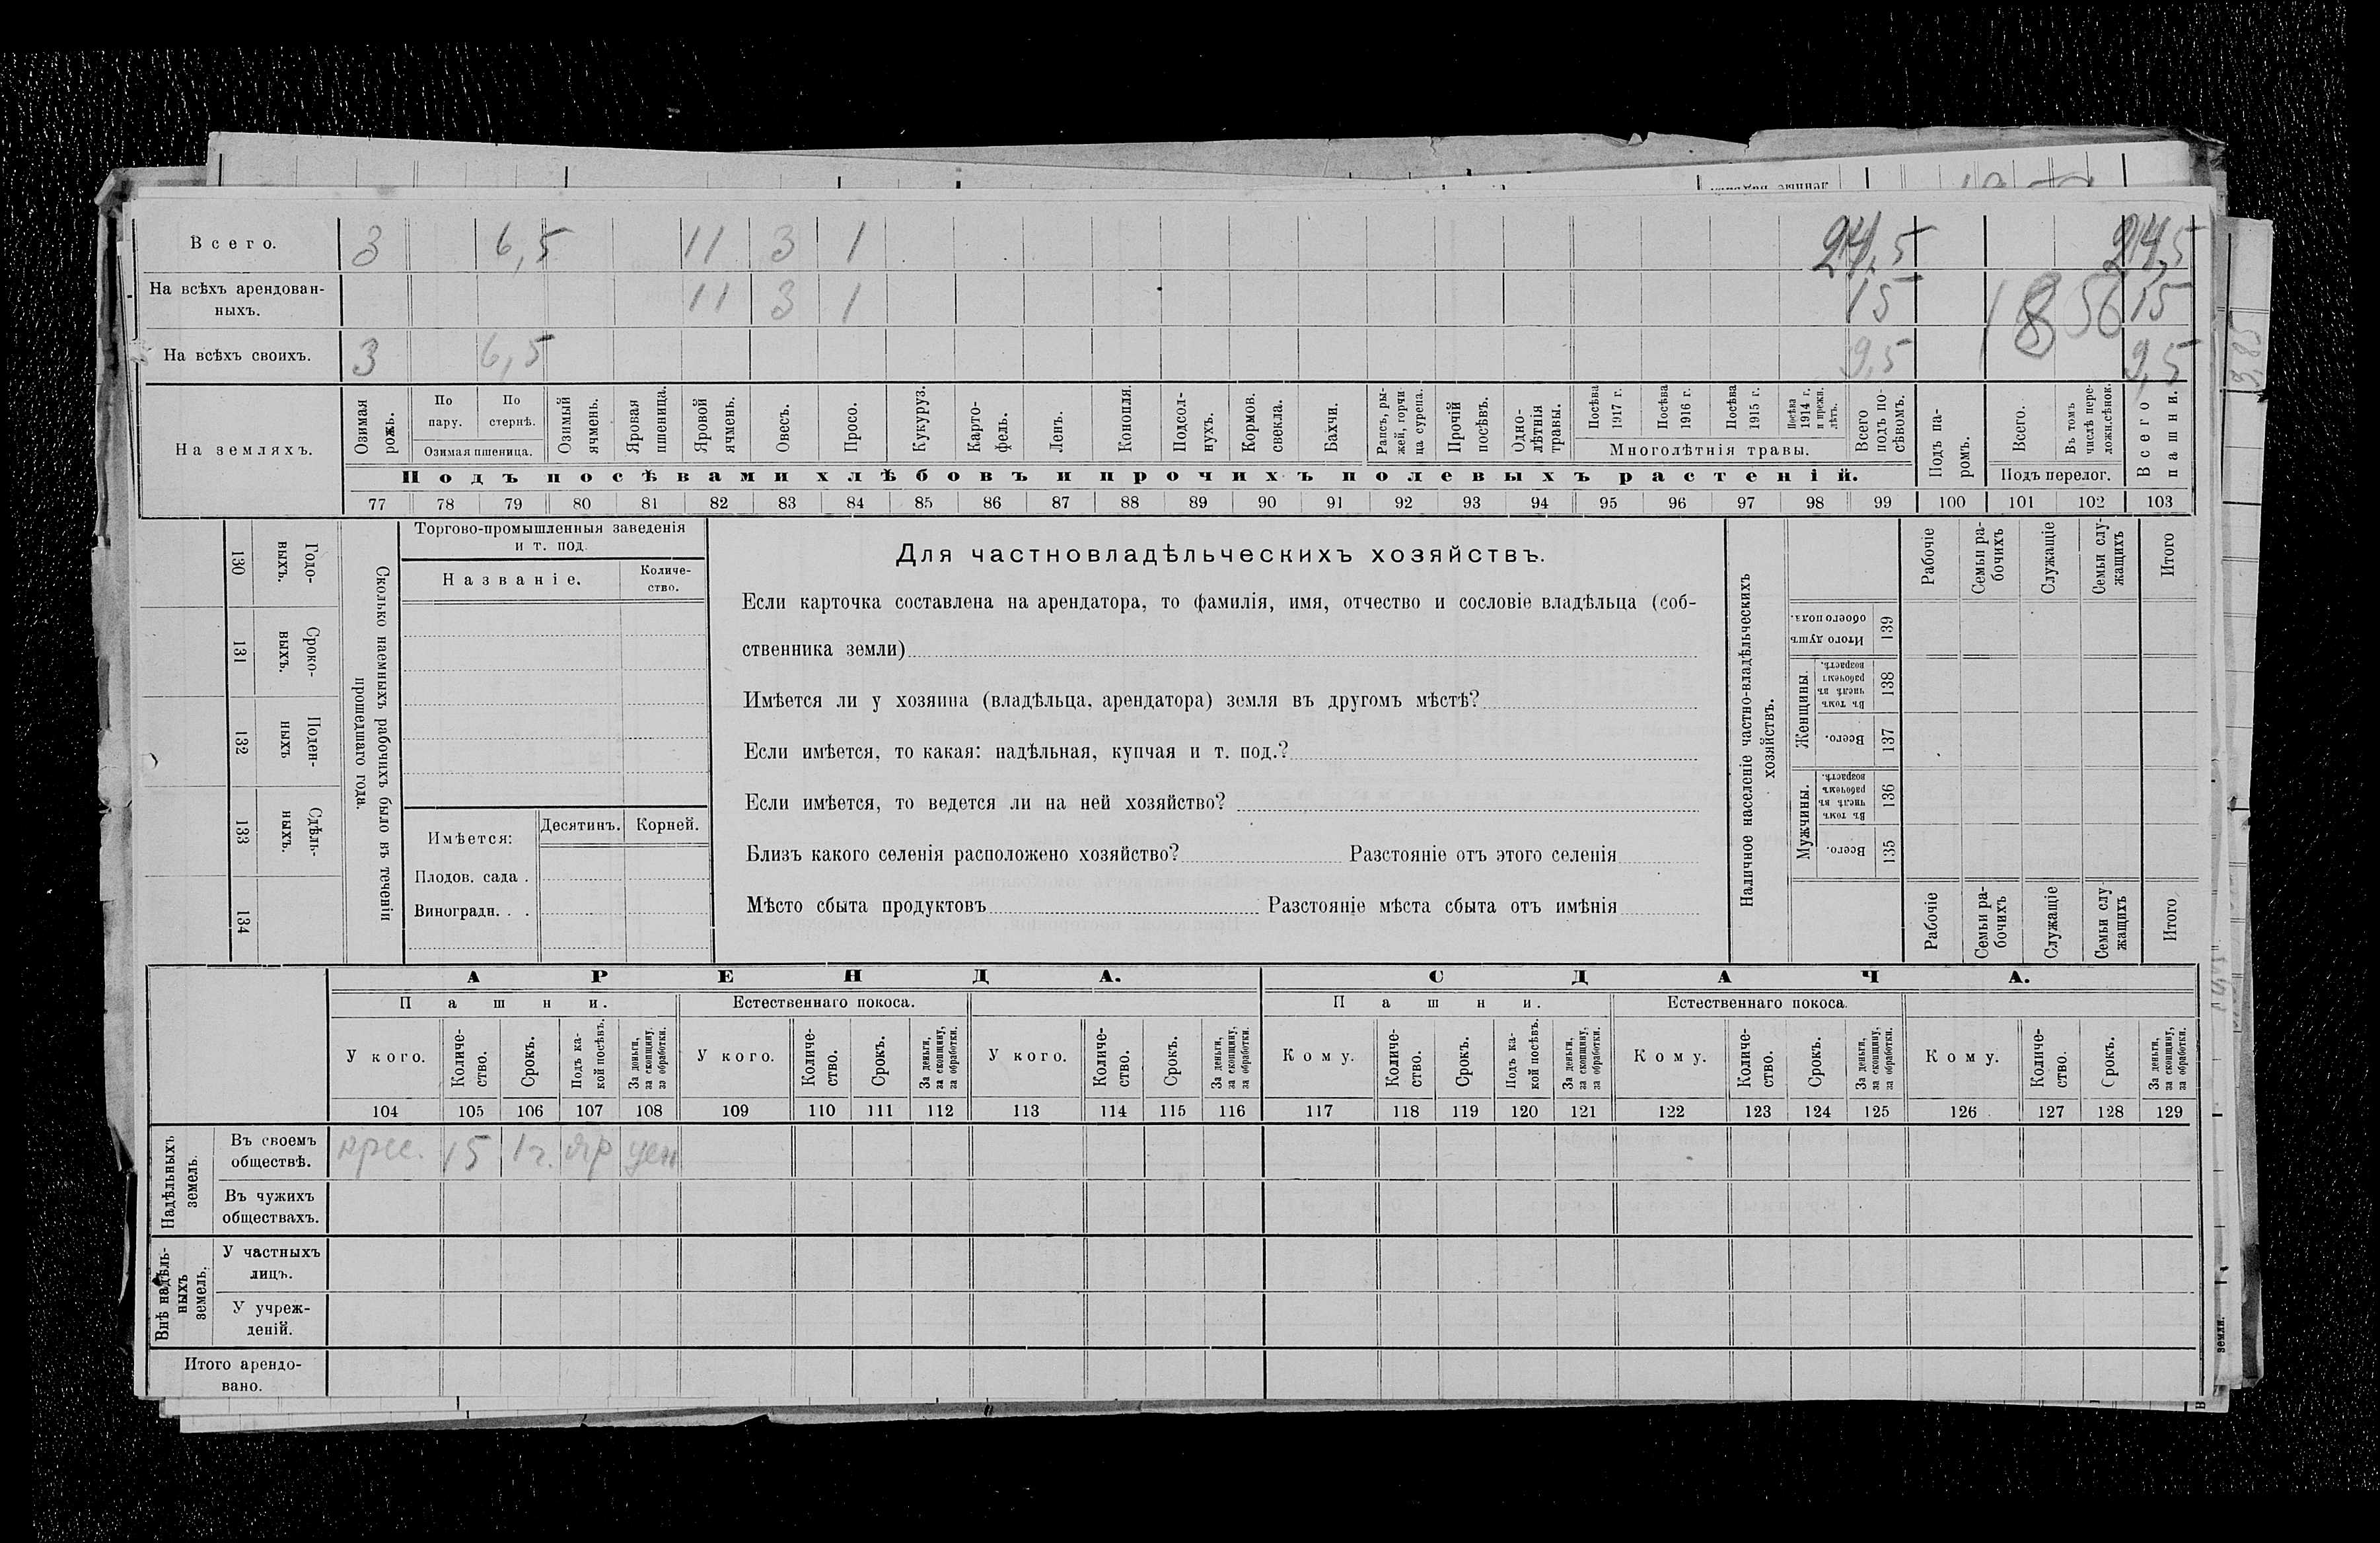 Всего. 3 6,5 11 3 1 24,5 24,5
На всѣхъ арендован-
ныхъ. 11 3 1 15 1856 15
На всѣхъ своихъ. 3 6,5 9,5 9,5
На земляхъ.
Озимая рожь.
По пару.
По стернѣ.
Озимая пшеница.
Озимый ячмень.
Яровая пшеница.
Яровой ячмень.
Овесъ.
Просо.
Кукуруз.
Карто-
фель.
Ленъ.
Конопля.
Подсол-
нухъ.
Кормов. свекла.
Бахчи.
Рапсъ, ры-
жей, горчи
ца сурепа.
Прочій посѣвъ.
Одно-
лѣтнія
травы.
Посѣва 1917 г.
Посѣва 1916 г.
Посѣва 1915 г.
Посѣва 1914 г. и прежн. лѣтъ.
Многолѣтнія травы.
Всего подъ по-
сѣвомъ.
Подъ па-
ромъ.
Всего.
Въ томъ числѣ пере-
ложн.сѣнок.
Подъ перелог.
Всего пашни.
Подъ посѣвами хлѣбовъ и прочихъ полевыхъ растеній.
77 78 79 80 81 82 83 84 85 86 87 88 89 90 91 92 93 94 95 96 97 98 99 100 101 102 103
Сколько наемныхъ рабочихъ было въ теченіи
прошедшаго года.
Годо-
выхъ.
130
Сроко-
выхъ.
131
Поден-
ныхъ
132
Сдѣль-
ныхъ.
133
134
Торгово-промышленныя заведенія
и т. под.
Названіе.
Количе-
ство.
Имѣется: Десятинъ. Корней.
Плодов. сада .
Виноградн. . .
Для частновладѣльческихъ хозяйствъ.
Если карточка составлена на арендатора, то фамилія, имя, отчество и сословіе владѣльца (соб-
ственника земли)
Имѣется ли у хозяина (владѣльца, арендатора) земля въ другомъ мѣстѣ?
Если имѣется, то какая: надѣльная, купчая и т. под.?
Если имѣется, то ведется ли на ней хозяйство?
Близъ какого селенія расположено хозяйство? Разстояніе отъ этого селенія
Мѣсто сбыта продуктовъ Разстояніе мѣста сбыта отъ имѣнія
Наличное населеніе частно-владѣльческихъ
хозяйствъ.
Рабочіе
Семьи ра-
бочихъ
Служащіе
Семьи слу-
жащихъ
Итого
Итого душъ обоего пола.
139
Женщины.
Въ томъ числѣ въ рабочемъ возрастѣ.
138
Всего.
137
Мужчины.
Въ томъ числѣ въ рабочемъ возрастѣ.
136
Всего.
135
Рабочіе
Семьи ра-
бочихъ
Служащіе
Семьи слу
жащихъ
Итого
АРЕНДА. СДАЧА.
Пашни. Естественнаго покоса. Пашни. Естественнаго покоса.
У кого.
Количе-
ство.
Срокъ.
Подъ ка-
кой посѣвъ.
За деньги, за скопщину, за обработки.
У кого.
Количе-
ство.
Срокъ.
За деньги, за скопщину, за обработки.
У кого.
Количе-
ство.
Срокъ.
За деньги, за скопщину, за обработки.
Кому.
Количе-
ство.
Срокъ.
Подъ ка-
кой посѣвъ.
За деньги, за скопщину, за обработки.
Кому.
Количе-
ство.
Срокъ.
За деньги, за скопщину, за обработки.
Кому.
Количе-
ство.
Срокъ.
За деньги, за скопщину, за обработки.
104 105 106 107 108 109 110 111 112 113 114 115 116 117 118 119 120 121 122 123 124 125 126 127 128 129
Надѣльныхъ земель.
Въ своемъ
обществѣ. крес. 15 1 г. яр ден
Въ чужихъ
обществахъ.
Внѣ надѣль-
ныхъ
земель.
У частныхъ
лицъ.
У учреж-
деній.
Итого арендо-
вано.
земли.